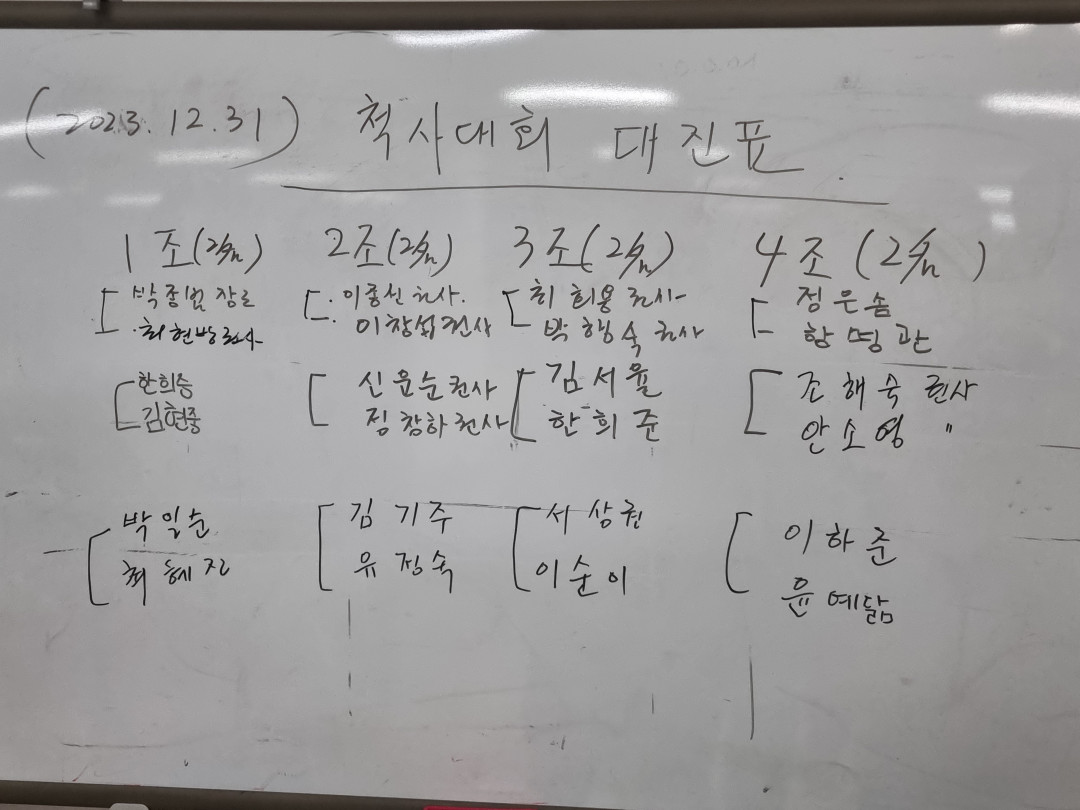 (2023.12.31) 척사대회 대진표.
1조(2名) 2조(2名) 3조(2名) 4조(2名)
박종범 장로
최현방 권사
한희승
김현중
박일순
최혜진
이종신 권사.
이창섭 권사
신윤순 권사
정창하 권사
김기주
유정숙
최희용 권사
박행숙 권사
김서율
한희준
서상권
이순이
정은솜
함명관
조해숙 권사
안소영 〃
이하준
윤예닮